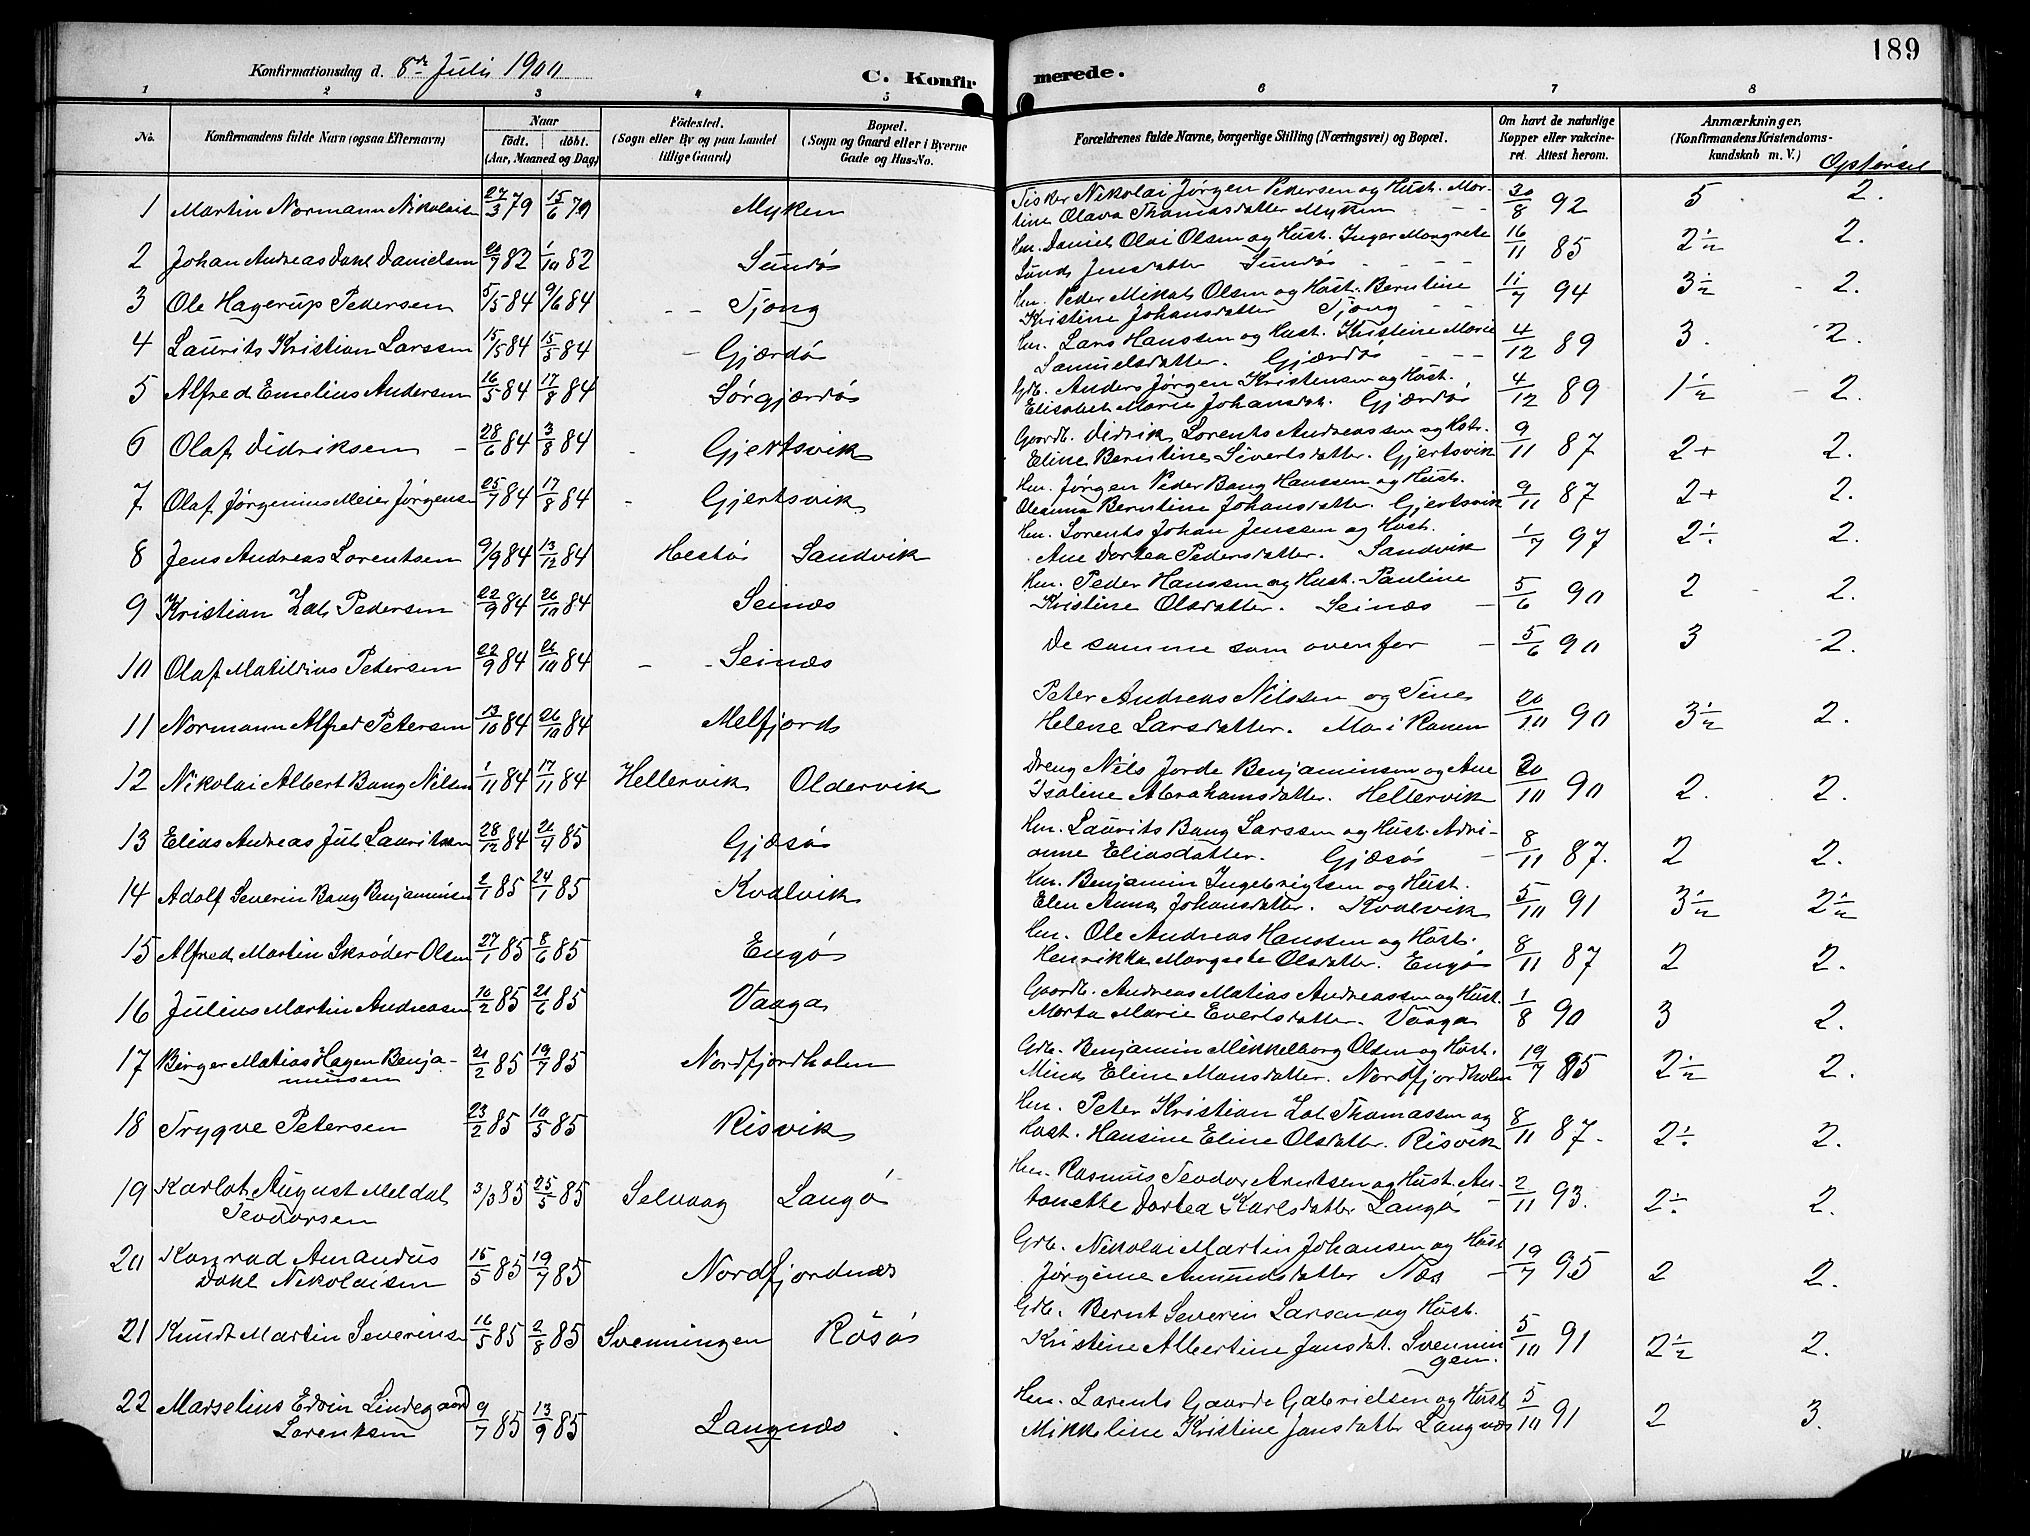 189
Konfirmationsdag d. 8de Juli 1900
C. Konfirmerede.
1 2 3 4 5 6 7 8
No. Konfirmandens fulde Navn (ogsaa Efternavn) Naar født. døbt. (Aar, Maaned og Dag) Fødested. (Sogn eller By og paa Landet tillige Gaard) Bopæl. (Sogn og Gaard eller i Byerne Gade og Hus-No. Forældrenes fulde Navne, borgerlige Stilling (Næringsvei) og Bopæl. Om havt de naturlige Kopper eller vakcineret. Attest herom. Anmærkninger. (Konfirmandens Kristendomskundskab m. V.) Opførsel
1 Martin Normann Nikolais 27/3 79 15/6 79 Myken Fisker Nikolai Jørgen Pedersen og Hust. Mar- 30/8 92 5 2.
tine Olava Thomasdatter Myken
2 Johan Andreas Dahl Danielsen 20/7 82 1/10 82 Sundø Hm. Daniel Olai Olsen og Hust. Inger Margrete 16/11 85 2½ 2.
Sund Jensdatter Sundø
3 Ole Hagerup Pedersen 5/5 84 9/6 84 Tjong Hm. Peder Mikal Olsen og Hust. Berntine 11/7 94 3½ 2.
Kristine Johansdatter Tjong
4 Laurits Kristian Larssen 15/5 84 15/5 84 Gjærdø Hm. Lars Hanssen og Hust. Kristine Marie 4/12 89 3. 2.
Samuelsdatter. Gjærdø
5 Alfred Emelius Andersen 16/5 84 17/8 84 Sørgjærdø Grdb. Anders Jørgen Kristensen og Hust. 4/12 89 1½ 2.
Elisabet Marie Johansdat. Gjærdø
6 Olaf Didriksen 28/6 84 3/8 84 Gjertsvik Gaardb. Didrik Lorents Andreassen og Hstr. 9/11 87 2+ 2.
Eline Berntine Sivertsdatter. Gjertsvik
7 Olaf Jørgenius Meier Jørgensen 25/7 84 17/8 84 Gjertsvik Hm. Jørgen Peder Bang Hanssen og Hust. 9/11 87 2+ 2.
Oleanna Berntine Johansdatter. Gjertsvik
8 Jens Andreas Lorentsen 9/9 84 13/12 84 Hestø Sandvik Hm. Lorents Johan Jenssen og Hust. 1/7 97 2÷ 2.
Ane Dortea Pedersdatter. Sandvik
9 Kristian Zal Pedersen 22/9 84 26/10 84 Seinæs Hm. Peder Hanssen og Hust. Pauline 5/6 90 2 2.
Kristine Olsdatter. Seinæs
10 Olaf Matildius Pedersen 22/9 84 26/10 84 Seinæs De samme som ovenfor 5/6 90 3 2.
11 Normann Alfred Petersen 13/10 84 26/10 84 Melfjord Peter Andreas Nilssen og Tine 20/10 90 3½ 2.
Helene Larsdatter. Mo i Ranen
12 Nikolai Albert Bang Nilsen 1/11 84 17/11 84 Hellervik Oldervik Dreng Nils Jorde Benjaminsen og Ane 20/10 90 2. 2.
Isaline Abrahamsdatter. Hellervik
13 Elias Andreas Jul Lauritsen 28/12 84 26/4 85 Gjæsø Hm. Laurits Bang Larssen og Hust. Adri- 8/11 87. 2 2.
anne Eliasdatter. Gjæsø
14 Adolf Severin Bang Benjaminsen 2/1 85 24/1 85 Kvalvik Hm. Benjamin Ingebrigtsen og Hust. 5/10 91 3½ 2½
Elen Anna Johansdatter. Kvalvik
15 Alfred Martin Skrøder Olsen 27/1 85 8/6 85 Engø Hm. Ole Andreas Hanssen og Hust. 8/11 87 2 2.
Henrikka Margrete Olsdatter. Engø
16 Julius Martin Andreasen 10/2 85 21/6 85 Vaaga Gaardb. Andreas Matias Andreassen og Hust. 1/8 90 3 2.
Marta Marie Evertsdatter. Vaaga
17 Birger Matias Hagen Benja- 21/2 85 19/7 85 Nordfjordholm Grdb. Benjamin Mikkelborg Olsen og Hust. 19/7 95 2½ 2.
minsen Mina Eline Monsdatter. Nordfjordholm
18 Trygve Petersen 23/2 85 10/5 85 Risvik Hm. Peter Kristian Zal Thomassen og 8/11 87. 2÷ 2.
Hust. Hansine Eline Olsdatter. Risvik
19 Karlot August Meldal 3/3 85 25/5 85 Selvaag Langø Hm. Rasmus Teodor Arntsen og Hust. An- 2/11 93. 2÷ 2.
Teodorsen tonette Dortea Karlsdatter Langø
20 Konrad Amandus 15/5 85 19/7 85 Nordfjordnes Grdb. Nikolai Martin Johansen og Hust 19/7 95 2 2.
Dahl Nikolaisen Jørgine Amundsdatter Næs
21 Knudt Martin Severinsen 16/5 85 2/8 85 Svenningen Rösø Grdb. Bernt Severin Larsen og Hust. 5/10 91 2½ 2.
Kristine Albertine Jansdat. Svennin
gen.
22 Marselius Edvin Lindegaard 9/7 85 13/9 85 Langnæs Hm. Lorents Gaarde Gabrielsen og Hust 5/10 91 2 3.
Lorentsen Mikkeline Kristine Jansdatter Langnæs